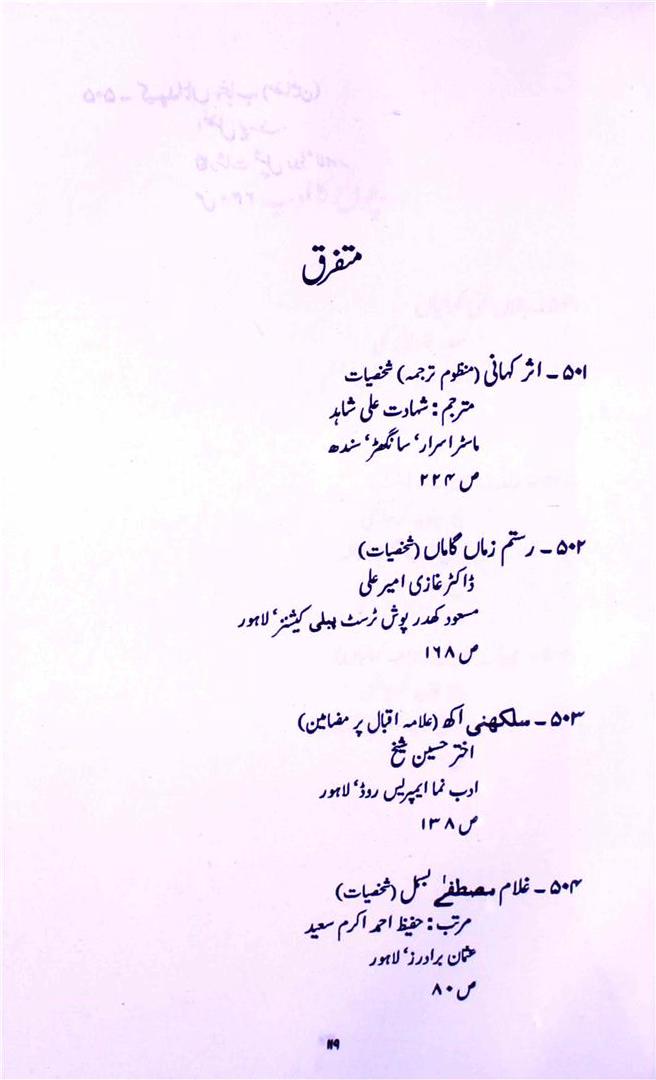 متفرق
۵۰۱ ۔ اثر کہانی (منظوم ترجمہ) شخصیات
مترجم : شہادت علی شاہد
ماسٹر اسرار، سانگھڑ، سندھ
ص ۲۲۴
۵۰۲ ۔ رستم زماں گاماں (شخصیات)
ڈاکٹر غازی امیر علی
مسعود کھدر پوش ٹرسٹ پبلی کیشنز، لاہور
ص ۱۶۸
۵۰۳ ۔ سلکھنی اکھ (علامہ اقبال پر مضامین)
اختر حسین شیخ
ادب نما ایمپریس روڈ، لاہور
ص ۱۳۸
۵۰۴ ۔ غلام مصطفےٰ بسمل (شخصیات)
مرتب : حفیظ احمد اکرم سعید
عثمان برادرز، لاہور
ص ۸۰
۱۱۹